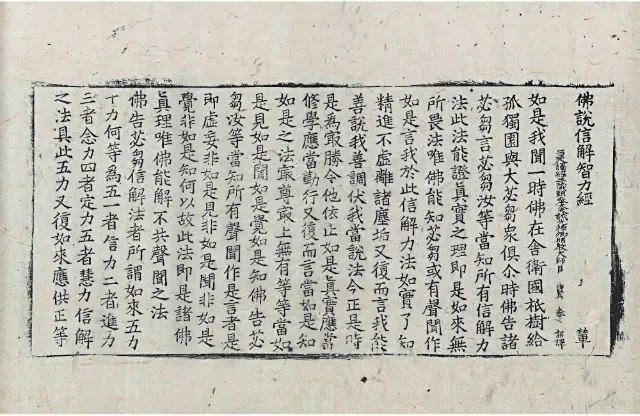 佛說信解智力經
輦
奉 詔譯
如是我聞一時佛在舍衛國祇樹給
孤獨園與大苾芻衆俱介時佛告諸
苾芻言苾芻汝等當知所有信解力
法此法能證眞實之理即是如來無
所畏法唯佛能知苾芻或有聲聞作
如是言我於此信解力法如實了知
精進不虛離諸塵垢又復而言我能
善說我善調伏我當說法今正是時
是為㝡勝令他依止如是眞實應當
修學應當勤行又復而言當如是知
如是之法㝡尊㝡上無有等等當如
是見如是聞如是覺如是知佛告苾
芻汝等當知所有聲聞作是言者是
即虛妄非如是見非如是聞非如是
覺非如是知何以故此法即是諸佛
眞理唯佛能解不共聲聞之法
佛告苾芻信解法者所謂如來五力
十力何等為五一者信力二者進力
三者念力四者定力五者慧力信解
之法具此五力又復如來應供正等